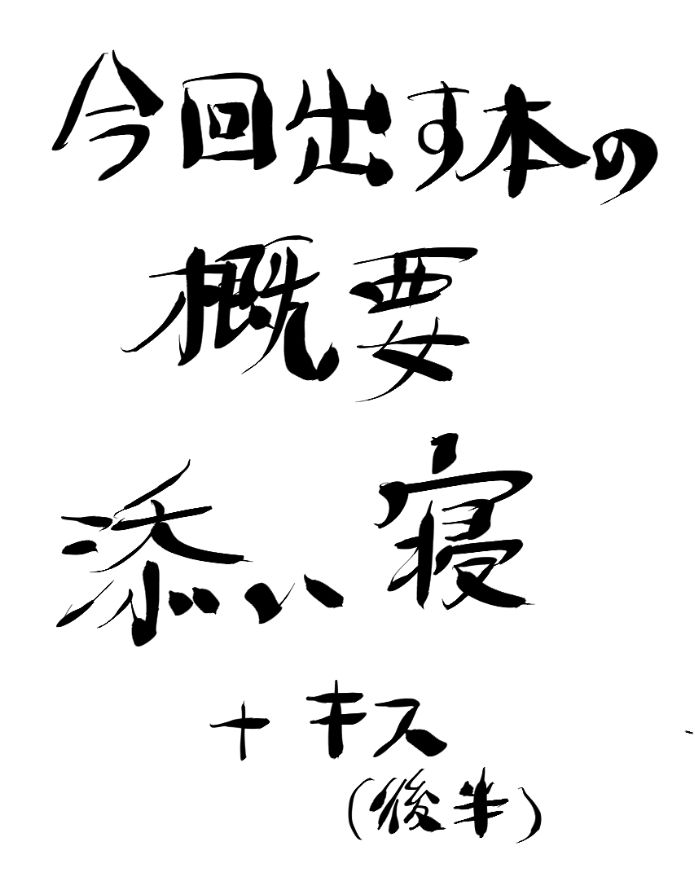 今回出す本の
概要
添い寝
+キス
(後半)